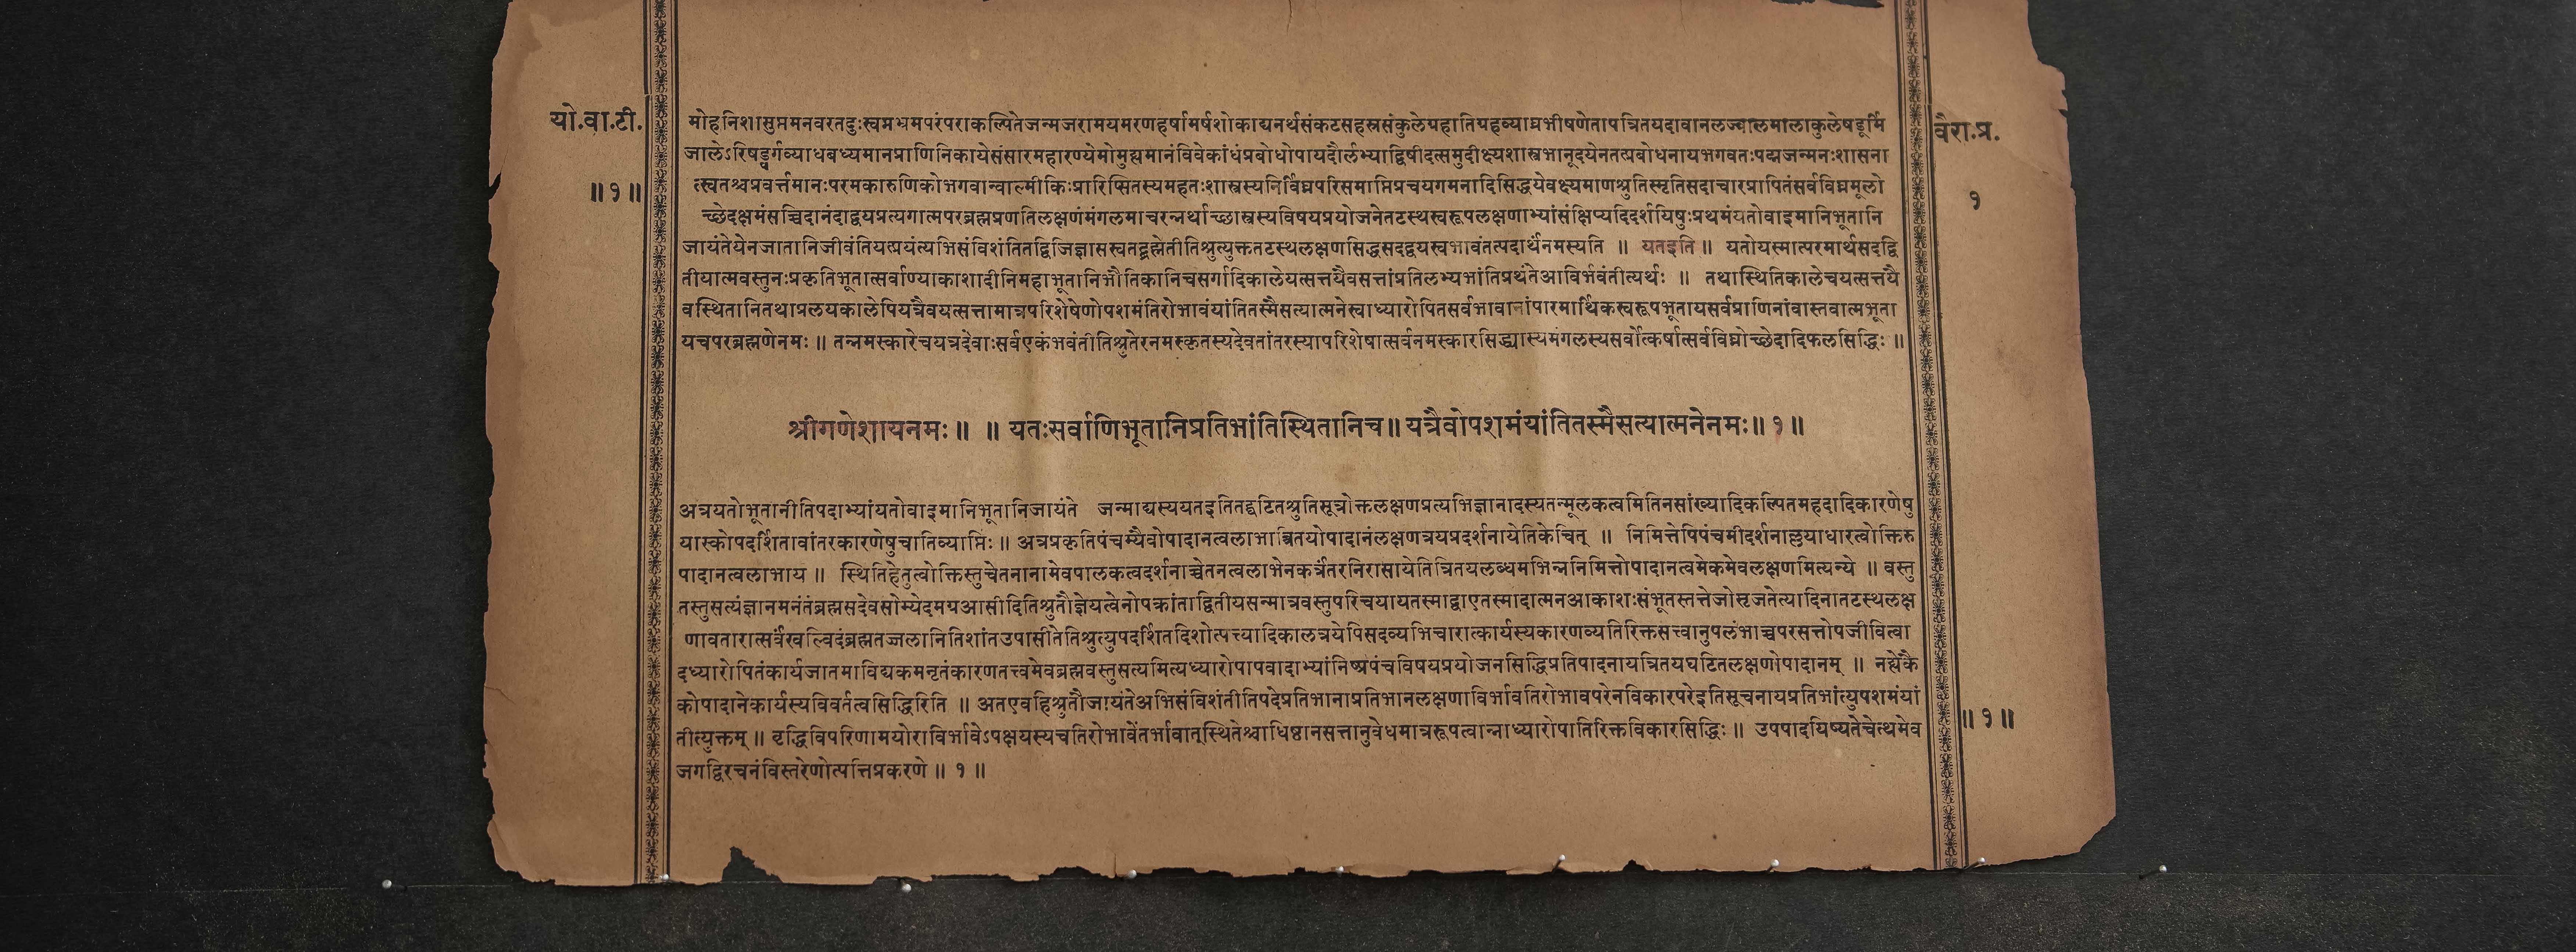 यो.वा.टी.
॥१॥
वैरा.प्र.
१
मोहनिशासुप्तमनवरतदुःस्वप्नभ्रमपरंपराकल्पितेजन्मजरामयमरणहर्षामर्षशोकाद्यनर्थसंकटसहस्रसंकुलेग्रहातिग्रहव्याघ्रभीषणेतापत्रितयदावानलज्वालमालाकुलेषडूर्मि
जालेऽरिषड्वर्गव्याधबध्यमानप्राणिनिकायेसंसारमहारण्येमोमुह्यमानंविवेकांधंप्रबोधोपायदौर्लभ्याद्विषीदत्समुदीक्ष्यशास्त्रभानूदयेनतत्प्रबोधनायभगवतःपद्मजन्मनःशासना
त्स्वतश्चप्रवर्त्तमानःपरमकारुणिकोभगवान्वाल्मीकिःप्रारिप्सितस्यमहतःशास्त्रस्यनिर्विघ्नपरिसमाप्तिप्रचयगमनादिसिद्धयेवक्ष्यमाणश्रुतिस्मृतिसदाचारप्रापितंसर्वविघ्नमूलो
च्छेदक्षमंसच्चिदानंदाद्वयप्रत्यगात्मपरब्रह्मप्रणतिलक्षणंमंगलमाचरन्नर्थाच्छास्त्रस्यविषयप्रयोजनेतटस्थस्वरूपलक्षणाभ्यांसंक्षिप्यदिदर्शयिषुःप्रथमंयतोवाइमानिभूतानि
जायंतेयेनजातानिजीवंतियत्प्रयंत्यभिसंविशंतितद्विजिज्ञासस्वतद्ब्रह्मेतीतिश्रुत्युक्ततटस्थलक्षणसिद्धसदद्वयस्वभावंतत्पदार्थंनमस्यति ॥ यतइति ॥ यतोयस्मात्परमार्थसदद्वि
तीयात्मवस्तुनःप्रकृतिभूतात्सर्वाण्याकाशादीनिमहाभूतानिभौतिकानिचसर्गादिकालेयत्सत्तयैवसत्तांप्रतिलभ्यभांतिप्रथंतेआविर्भवंतीत्यर्थः ॥ तथास्थितिकालेचयत्सत्तयै
वस्थितानितथाप्रलयकालेपियत्रैवयत्सत्तामात्रपरिशेषेणोपशमंतिरोभावंयांतितस्मैसत्यात्मनेस्वाध्यारोपितसर्वभावानांपारमार्थिकस्वरूपभूतायसर्वप्राणिनांवास्तवात्मभूता
यचपरब्रह्मणेनमः ॥ तन्नमस्कारेचयत्रदेवाःसर्वएकंभवंतीतिश्रुतेरनमस्कृतस्यदेवतांतरस्यापरिशेषात्सर्वनमस्कारसिद्ध्यास्यमंगलस्यसर्वोत्कर्षात्सर्वविघ्नोच्छेदादिफलसिद्धिः ॥
श्रीगणेशायनमः ॥ ॥ यतःसर्वाणिभूतानिप्रतिभांतिस्थितानिच ॥ यत्रैवोपशमंयांतितस्मैसत्यात्मनेनमः ॥ १ ॥
अत्रयतोभूतानीतिपदाभ्यांयतोवाइमानिभूतानिजायंते जन्माद्यस्ययतइतितद्घटितश्रुतिसूत्रोक्तलक्षणप्रत्यभिज्ञानादस्यतन्मूलकत्वमितिनसांख्यादिकल्पितमहदादिकारणेषु
यास्कोपदर्शितावांतरकारणेषुचातिव्याप्तिः ॥ अत्रप्रकृतिपंचम्यैवोपादानत्वलाभात्त्रितयोपादानंलक्षणत्रयप्रदर्शनायेतिकेचित् ॥ निमित्तेपिपंचमीदर्शनाल्लयाधारत्वोक्तिरु
पादानत्वलाभाय ॥ स्थितिहेतुत्वोक्तिस्तुचेतनानामेवपालकत्वदर्शनाच्चेतनत्वलाभेनकर्त्रंतरनिरासायेतित्रितयलब्धमभिन्ननिमित्तोपादानत्वमेकमेवलक्षणमित्यन्ये ॥ वस्तु
तस्तुसत्यंज्ञानमनंतंब्रह्मसदेवसोम्येदमग्रआसीदितिश्रुतौज्ञेयत्वेनोपक्रांताद्वितीयसन्मात्रवस्तुपरिचयायतस्माद्वाएतस्मादात्मनआकाशःसंभूतस्तत्तेजोसृजतेत्यादिनातटस्थलक्ष
णावतारात्सर्वंखल्विदंब्रह्मतज्जलानितिशांतउपासीतेतिश्रुत्युपदर्शितदिशोत्पत्त्यादिकालत्रयेपिसदव्यभिचारात्कार्यस्यकारणव्यतिरिक्तसत्त्वानुपलंभाच्चपरसत्तोपजीवित्वा
दध्यारोपितंकार्यजातमाविद्यकमनृतंकारणतत्त्वमेवब्रह्मवस्तुसत्यमित्यध्यारोपापवादाभ्यांनिष्प्रपंचविषयप्रयोजनसिद्धिप्रतिपादनायत्रितयघटितलक्षणोपादानम् ॥ नह्येकै
कोपादानेकार्यस्यविवर्तत्वसिद्धिरिति ॥ अतएवहिश्रुतौजायंतेअभिसंविशंतीतिपदेप्रतिभानाप्रतिभानलक्षणाविर्भावतिरोभावपरेनविकारपरेइतिसूचनायप्रतिभांत्युपशमंयां
तीत्युक्तम् ॥ वृद्धिविपरिणामयोराविर्भावेऽपक्षयस्यचतिरोभावेंतर्भावात्स्थितेश्चाधिष्ठानसत्तानुवेधमात्ररूपत्वान्नाध्यारोपातिरिक्तविकारसिद्धिः ॥ उपपादयिष्यतेचेत्थमेव
जगद्विरचनंविस्तरेणोत्पत्तिप्रकरणे ॥ १ ॥
॥१॥